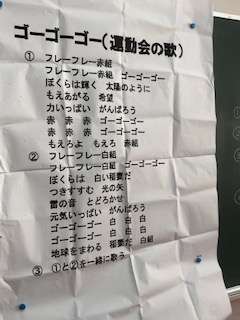 ゴーゴーゴー(運動会の歌)
① フレーフレー赤組
フレーフレー赤組 ゴーゴーゴー
ぼくらは輝く 太陽のように
もえあがる 希望
力いっぱい がんばろう
赤 赤 赤 ゴーゴーゴー
赤 赤 赤 ゴーゴーゴー
もえろよ もえろ 赤組
② フレーフレー白組
フレーフレー白組 ゴーゴーゴー
ぼくらは 白い稲妻だ
つきすすむ 光の矢
雷の音 とどろかせ
元気いっぱい がんばろう
ゴーゴーゴー 白 白 白
ゴーゴーゴー 白 白 白
地球をまわる 稲妻だ 白組
③ ①と②を一緒に歌う